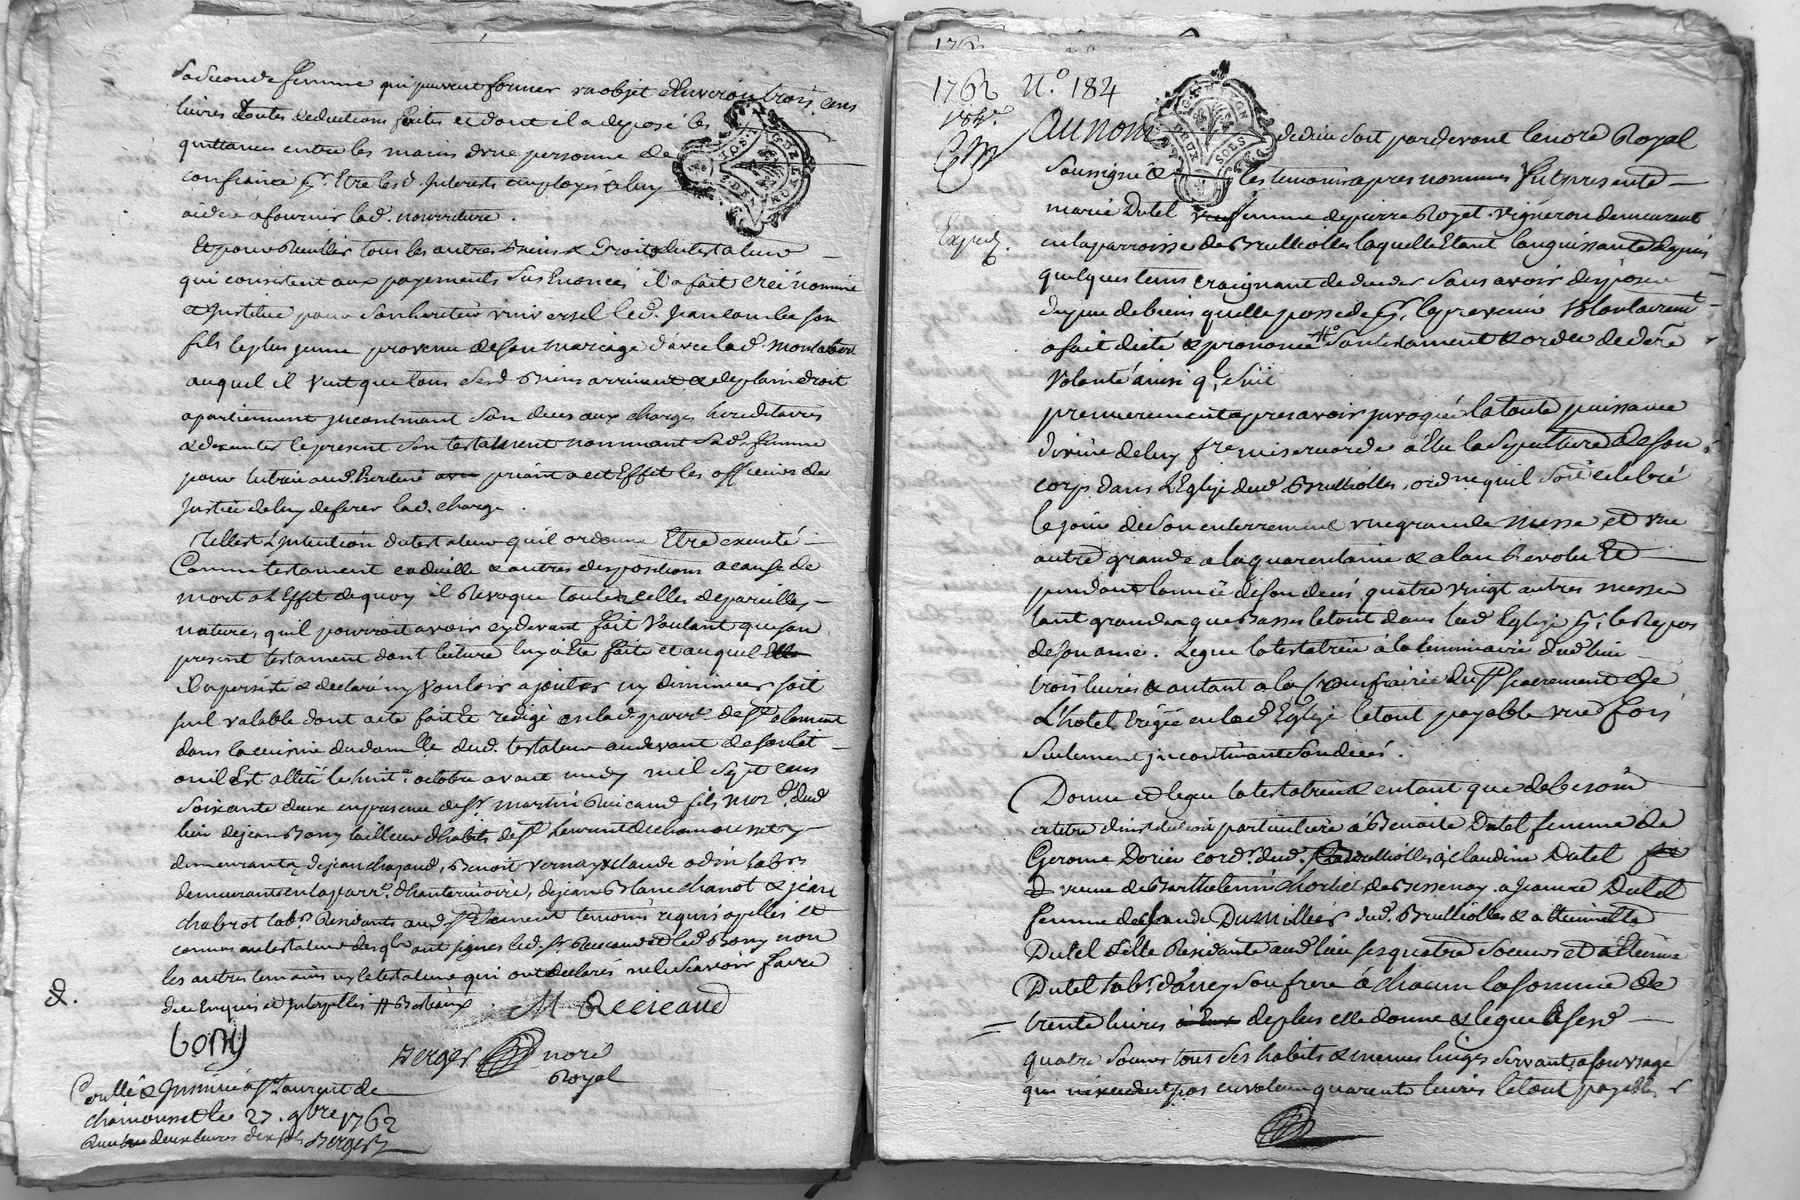 sa seconde femme qui peuvent former un objet d'environ trois cens
livres toutes deductions faites et dont il a deposé les
quittances entre les mains d'une personne de
confiance pr. Etre lesd. Interests employés à luy
aider a fournir lad. nourriture.
Et pour Recüillir tous les autres Biens & Droits du testateur
qui consistent aux payements sus Enoncés il a fait créé nommé
et Institué pour son heritier universel led. Jean son
fils le plus jeune provenu de son mariage d'avec lad.
auquel il veut que tous sesd. Biens arrivent & de plain droit
apartiennent incontinant son deces aux charges hereditaires
& d'executer le present son testament nommant sad. femme
pour tutrice aud. heritier priant a cet Effet les officiers de
Justice de luy deferer lad. charge.
Telle est L'intention du testateur qu'il ordonne Etre executé
Comme testament codicille & autres dispositions a cause de
mort a L'effet de quoy il Revoque toutes celles de pareilles
natures qu'il pourroit avoir cydevant fait Voulant que son
present testament dont lecture luy a Eté faite et auquel
il a persisté & declaré ny Vouloir ajouter ny diminuer soit
seul valable dont acte fait & redigé en lad. parr. de St. Clement
dans la cuisine du domlle. dud. testateur au devant de son lit
ou il Est allité le huit octobre avant midy mil Sept cens
soixante deux en presence de Sr. martin Reicaud fils md. dud.
lieu de jean Bony tailleur d'habits de St. Laurent de chamousset y
demeurants, de jean, Benoit Vernay & claude odin labrs
demeurants en la parr. d'hauterivoire, de jean Blanchanot & jean
chabrot labrs. Residants aud. St. Clement temoins requis apellés et
connus au testateur desqls. ont signés led. Sr. Reicaud & led. Bony non
les autres temoins ny le testateur qui ont declarés ne le scavoir faire
de ce Enquis et Interpellés
&.
M Reicaud
bony
Berger noré
Royal
Conllé & Insinué a St. Laurent de
chamousset le 27. 9bre 1762
deux livres dix sols Berger
1762 N.° 184
Expedz.
Au nom de dieu soit par devant le noré Royal
soussigné & les temoins apres nommés fut presente
marie Dutel femme de pierre Rozet vigneron demeurant
en la parroisse de Brullioles laquelle Etant languissante depuis
quelques tems craignant de deceder sans avoir disposé
du peu de biens quelle possede pr. le prevenir Volontairemt.
a fait dicté & prononcé son testament & ordce. de dere.
Volonté ainsi ql. suit
premierement apres avoir invoqué la toute puissance
divine de luy fre. misericorde a Elu la sepulture de son
corps dans L'Eglise dud. Brullioles, ordne. qu'il soit celebré
le jour de son enterrement une grande messe et une
autre grande a la quarentaine & a l'an Revolu Et
pendant l'année de son deces quatre vingt autres messes
tant grandes que Basses le tout dans lad. Eglise pr. le Repos
de son ame. Legue la testatrice à la luminaire dud. lieu
trois livres & autant a la Confrairie du St. Sacrement de
L'hotel Erigée en lad. Eglise le tout payable une fois
seulement incontinant son deces.
Donne et legue la testatrice & entant que de besoin
a titre d'institution particuliere à Benoite Dutel femme de
Gerome Dorier cordr. dud. Brullioles, à claudine Dutel
veuve de Barthelemi de Bessenay, a Jeanne Dutel
femme de claude Dumillier dud. Brullioles & a Etiennette
Dutel fille Residante aud. lieu ses quatre soeurs et a Etienne
Dutel labr. d'ancy son frere à chacun la somme de
trente livres de plus elle donne & legue à sesd.
quatre soeurs tous ses habits & menus linges servants a son usage
qui n'excedent pas en valeur quarente livres le tout payable